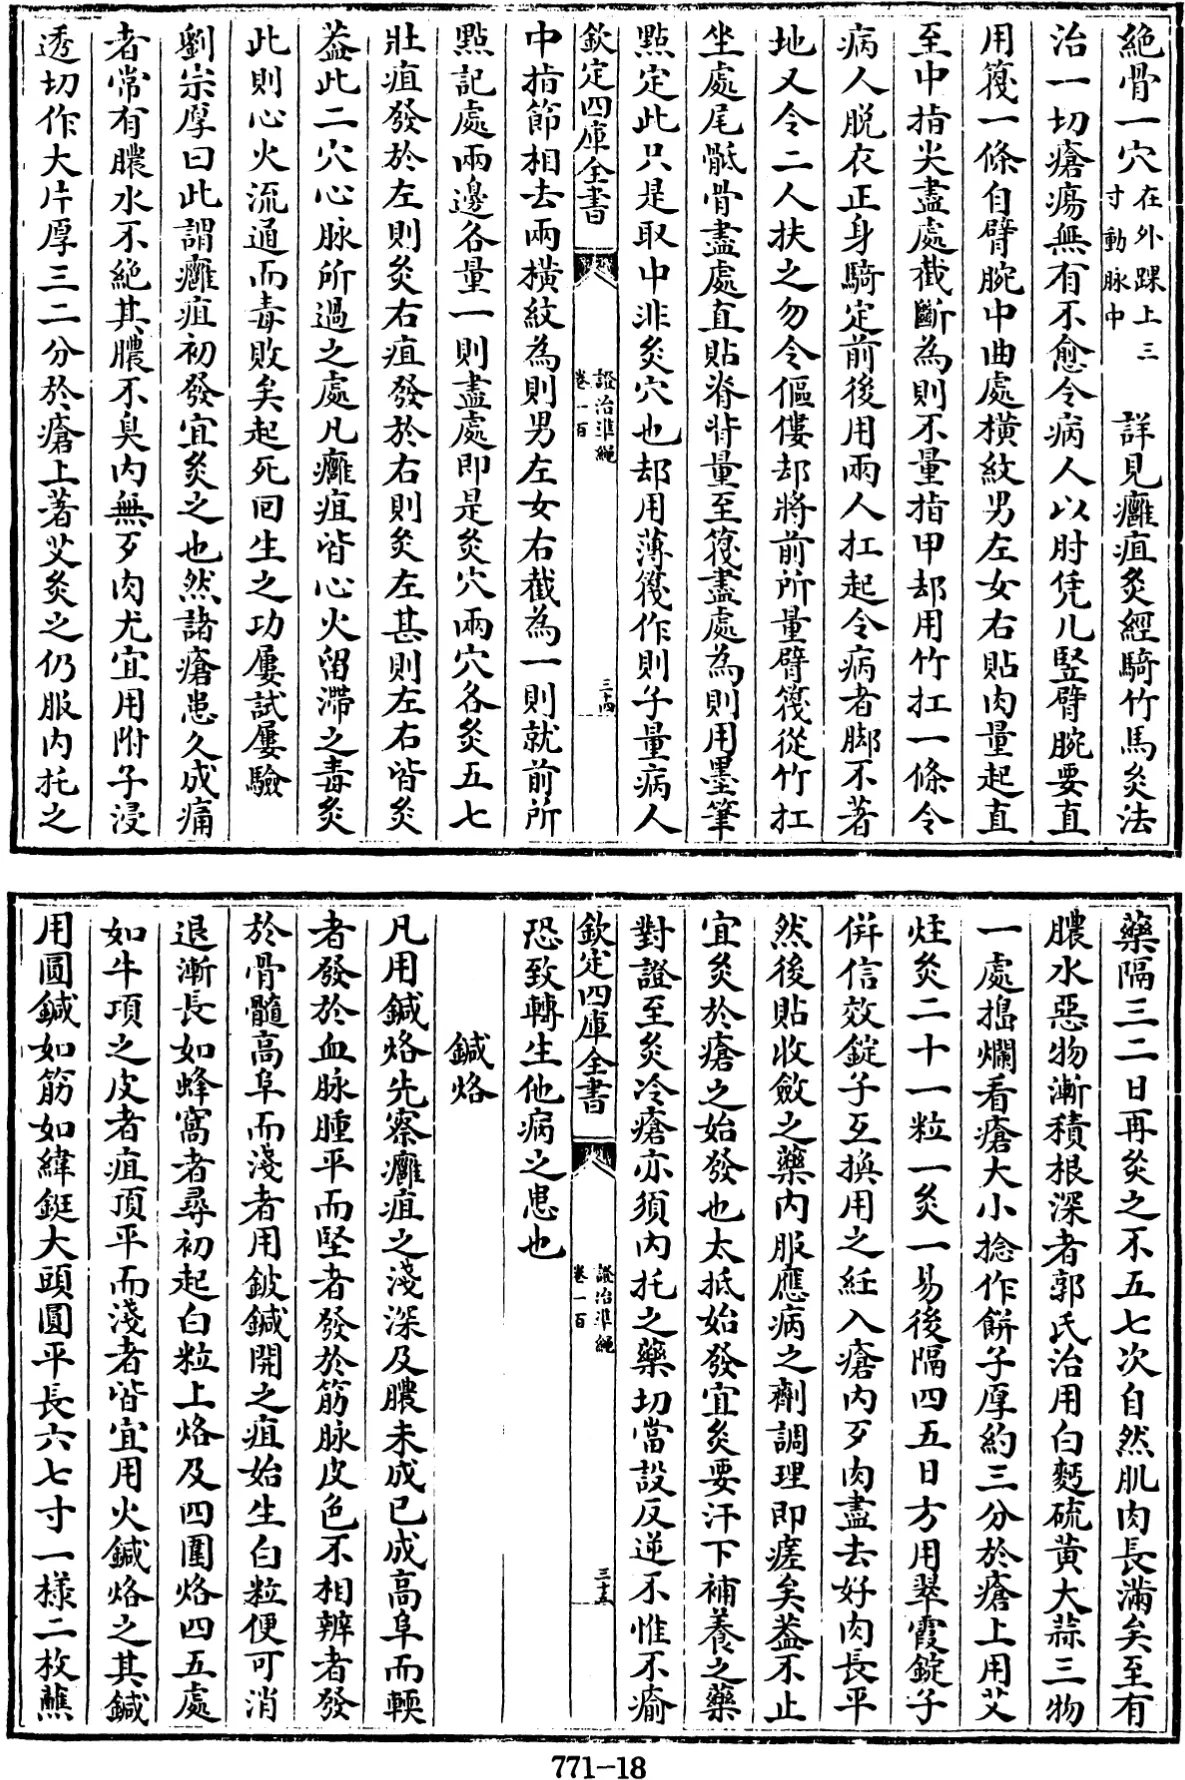 絶骨一穴在外踝上三寸動脉中　詳見癰疽灸經騎竹馬灸法
治一切瘡瘍無有不愈令病人以肘凭几竪臂腕要直
用篾一條自臂腕中曲處橫紋男左女右貼肉量起直
至中指尖盡處截斷為則不量指甲却用竹扛一條令
病人脱衣正身騎定前後用兩人扛起令病者脚不著
地又令二人扶之勿令傴僂却將前所量臂篾從竹扛
坐處尾骶骨盡處直貼脊背量至篾盡處為則用墨筆
點定此只是取中非灸穴也却用薄篾作則子量病人
欽定四庫全書
證治準繩
卷一百
三十四
中指節相去兩橫紋為則男左女右截為一則就前所
點記處兩邊各量一則盡處即是灸穴兩穴各灸五七
壯疽發於左則灸右疽發於右則灸左甚則左右皆灸
葢此二穴心脉所過之處凡癰疽皆心火留滯之毒灸
此則心火流通而毒敗矣起死回生之功屢試屢驗
劉宗厚曰此謂癰疽初發宜灸之也然諸瘡患久成痛
者常有膿水不絶其膿不臭内無歹肉尤宜用附子浸
透切作大片厚三二分於瘡上著艾灸之仍服内托之
藥隔三二日再灸之不五七次自然肌肉長滿矣至有
膿水惡物漸積根深者郭氏治用白麪硫黄大蒜三物
一處搗爛看瘡大小捻作餅子厚約三分於瘡上用艾
炷灸二十一粒一灸一易後隔四五日方用翠霞錠子
併信效錠子互換用之紝入瘡内歹肉盡去好肉長平
然後貼收斂之藥内服應病之劑調理即瘥矣葢不止
宜灸於瘡之始發也大抵始發宜灸要汗下補養之藥
對證至灸冷瘡亦須内托之藥切當設反逆不惟不瘉
欽定四庫全書
證治準繩
卷一百
三十五
恐致轉生他病之患也
鍼烙
凡用鍼烙先察癰疽之淺深及膿未成已成高阜而輭
者發於血脉腫平而堅者發於筋脉皮色不相辨者發
於骨髓高阜而淺者用鈹鍼開之疽始生白粒便可消
退漸長如蜂窩者尋初起白粒上烙及四圍烙四五處
如牛項之皮者疽頂平而淺者皆宜用火鍼烙之其鍼
用圓鍼如筋如緯鋌大頭圓平長六七寸一様二枚蘸
771-18